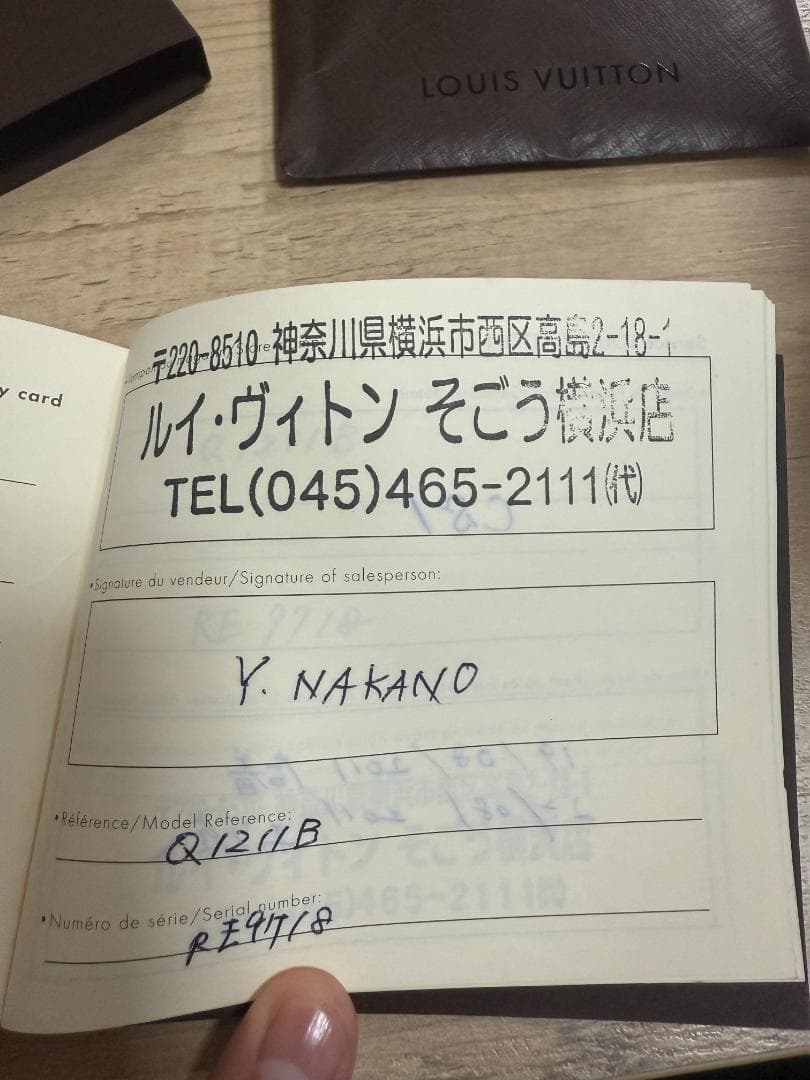 LOUIS VUITTON
y card
〒220-8510 神奈川県横浜市西区高島2-18-1
ルイ・ヴィトン そごう横浜店
TEL(045)465-2111(代)
•Signature du vendeur/Signature of salesperson:
Y. NAKANO
•Référence/Model Reference:
Q1211B
•Numéro de série/Serial number:
RE9718